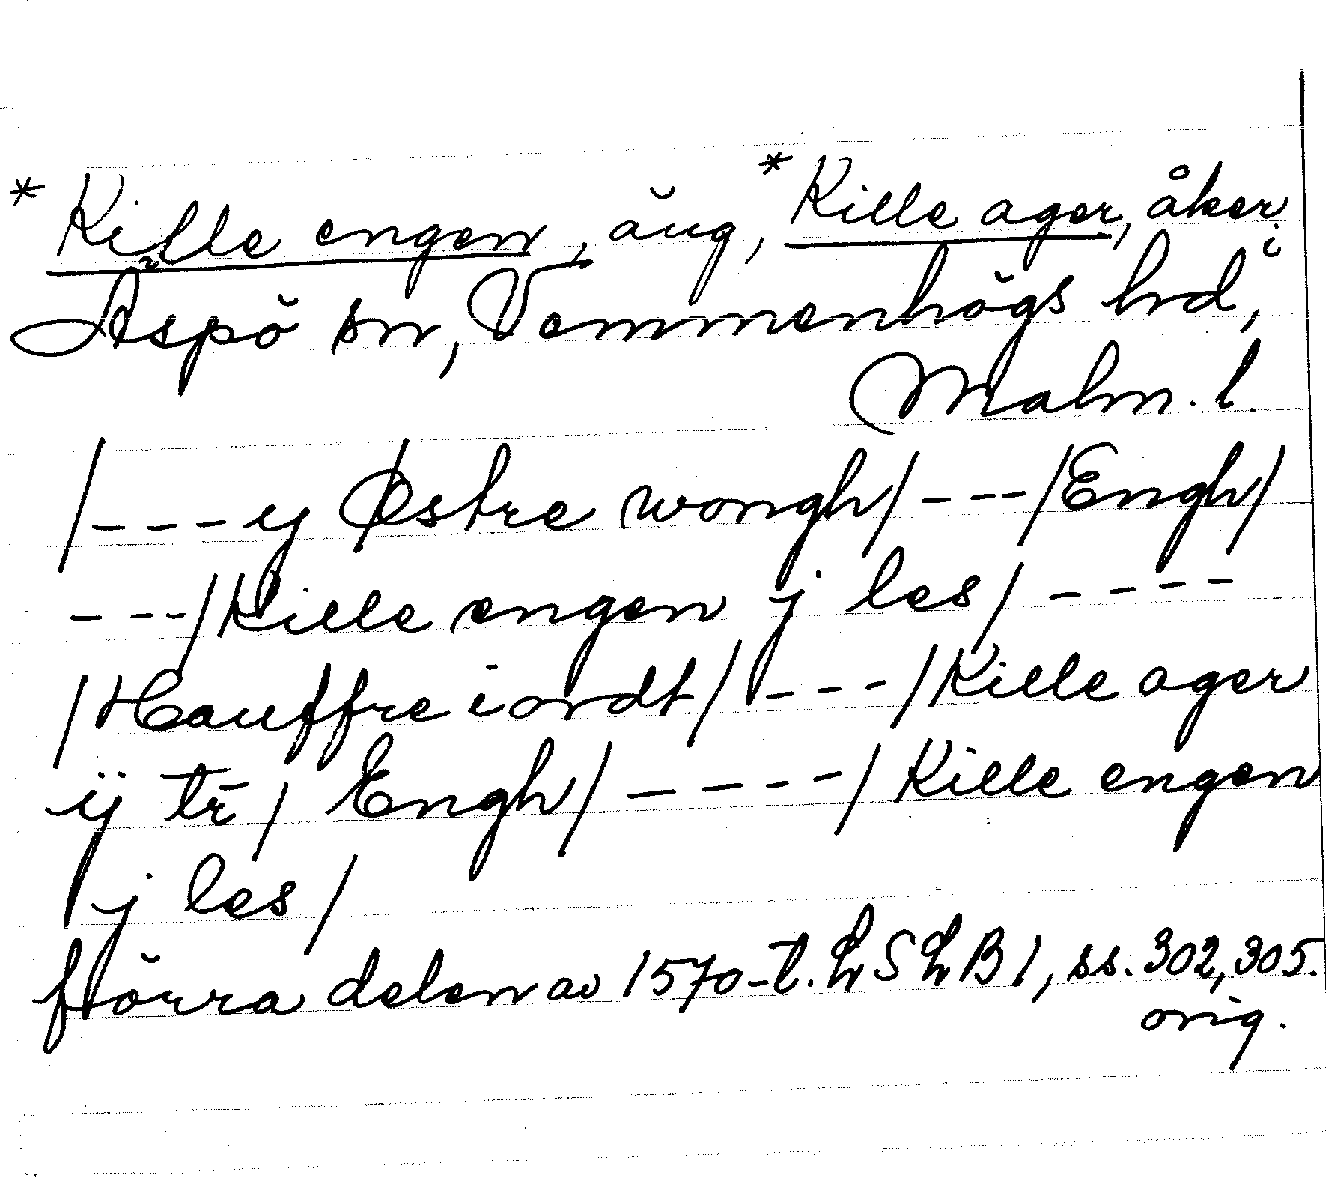 * Kille engen, äng, * Kille ager, åker i
Äspö sn, Vemmenhögs hd,
Malm. l.
/---y Østre wongh/---/Engh/
---/Kille engen j les/----
/Hauffre iordt/---/Kille ager
ij tr̄/ Engh/----/Kille engen
j les/
förra delen av 1570-t. LSLB 1, ss. 302, 305.
orig.